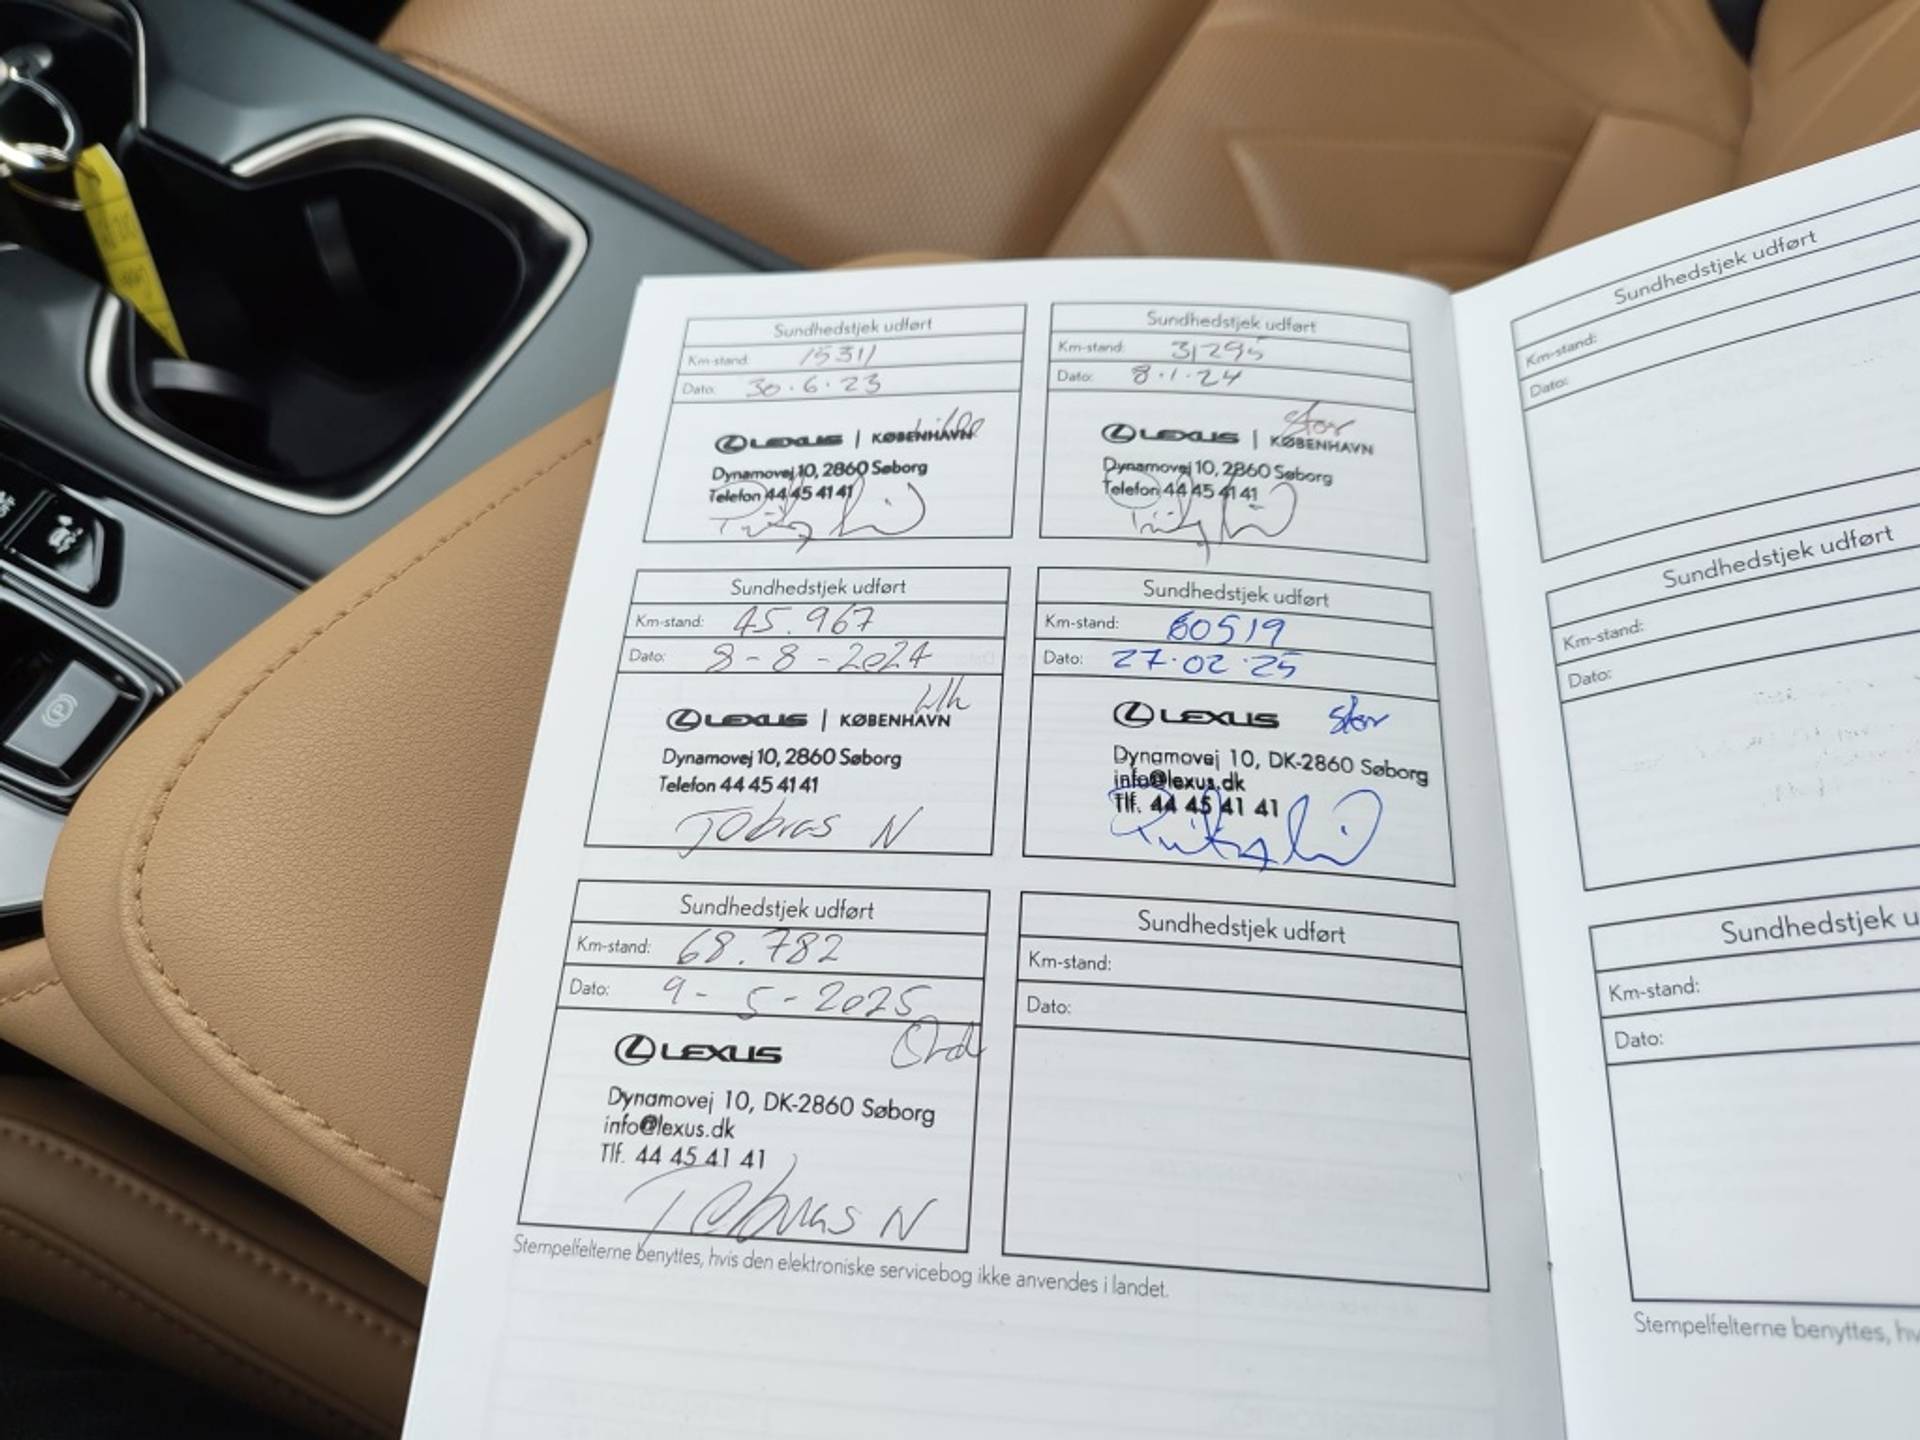 Sundhedstjek udført
Km-stand: 15311
Dato: 30.6.23
lille
LEXUS | KØBENHAVN
Dynamovej 10, 2860 Søborg
Telefon 44 45 41 41
Sundhedstjek udført
Km-stand: 31295
Dato: 8.1.24
Stor
LEXUS | KØBENHAVN
Dynamovej 10, 2860 Søborg
Telefon 44 45 41 41
Sundhedstjek udført
Km-stand: 45.967
Dato: 8-8-2024
LEXUS | KØBENHAVN
Dynamovej 10, 2860 Søborg
Telefon 44 45 41 41
Tobias N
Sundhedstjek udført
Km-stand: 60519
Dato: 27.02.25
LEXUS Stor
Dynamovej 10, DK-2860 Søborg
info@lexus.dk
Tlf. 44 45 41 41
Sundhedstjek udført
Km-stand: 68.782
Dato: 9-5-2025
LEXUS
Dynamovej 10, DK-2860 Søborg
info@lexus.dk
Tlf. 44 45 41 41
Tobias N
Sundhedstjek udført
Km-stand:
Dato:
Stempelfelterne benyttes, hvis den elektroniske servicebog ikke anvendes i landet.
Sundhedstjek udført
Km-stand:
Dato:
Sundhedstjek udført
Km-stand:
Dato:
Sundhedstjek u
Km-stand:
Dato:
Stempelfelterne benyttes, hv